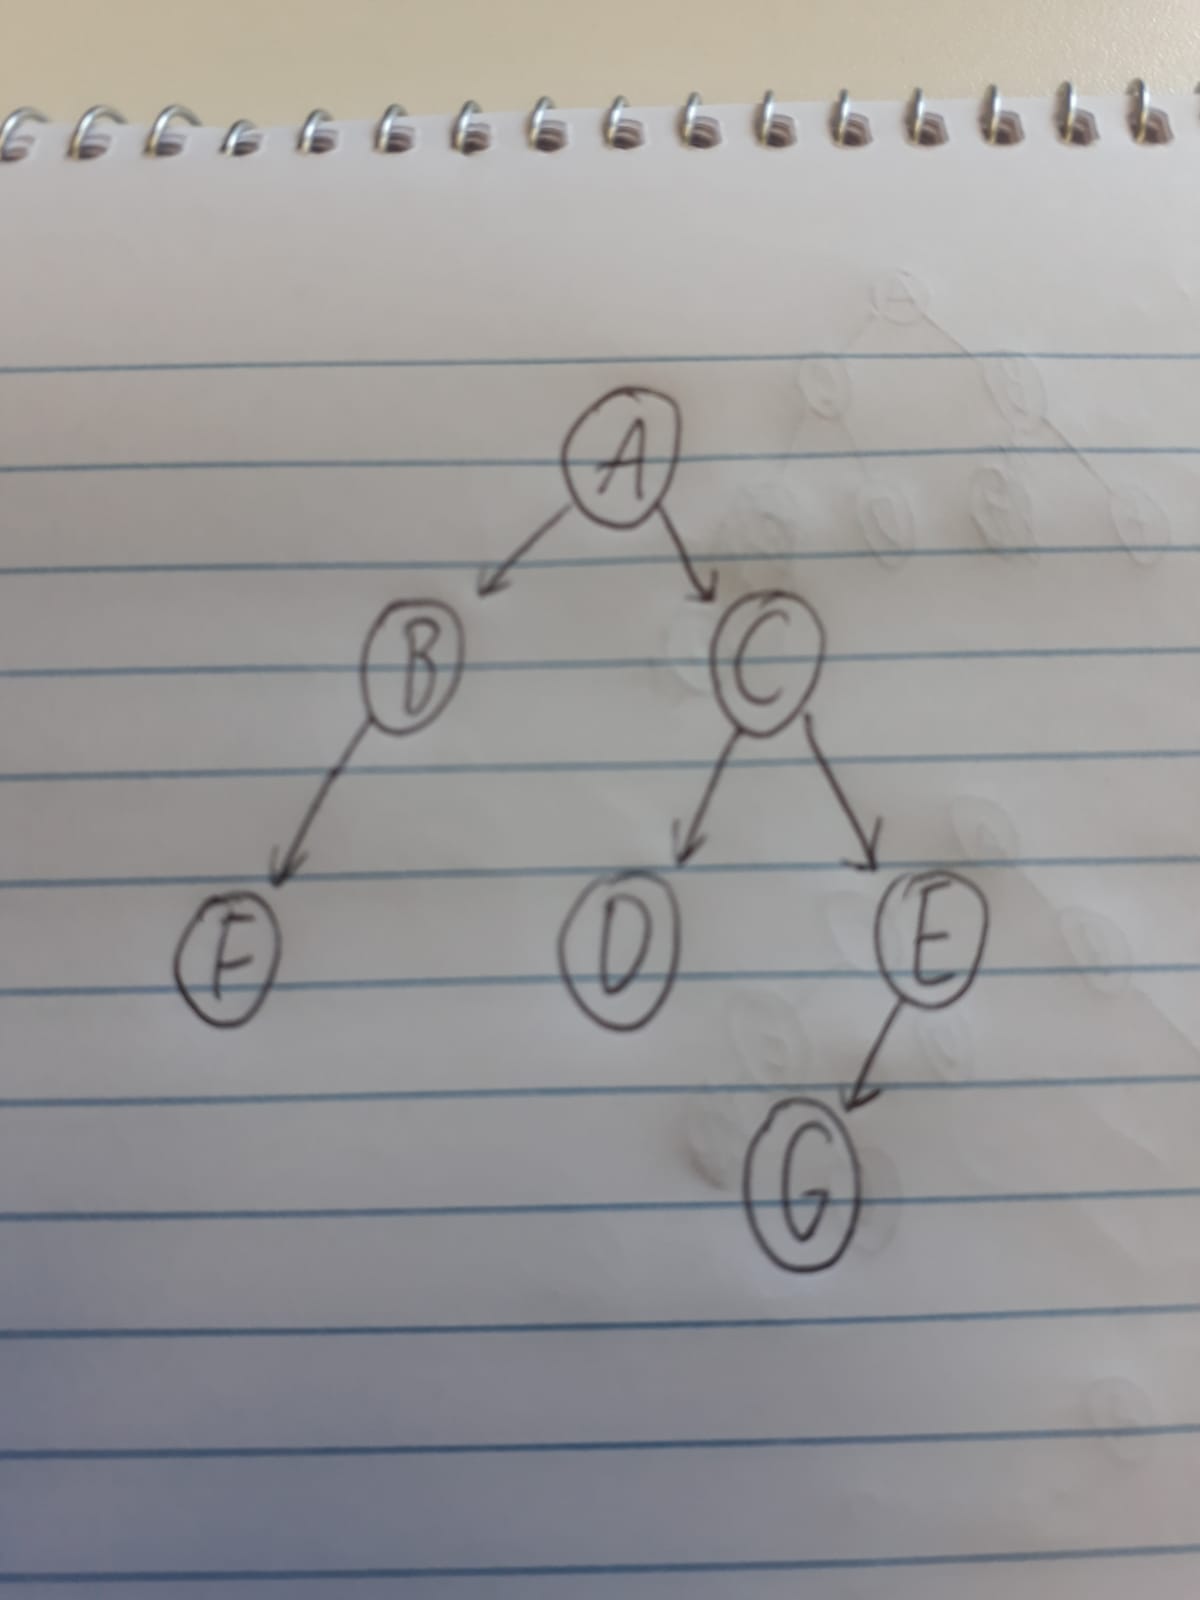 A
B C
F D E
G